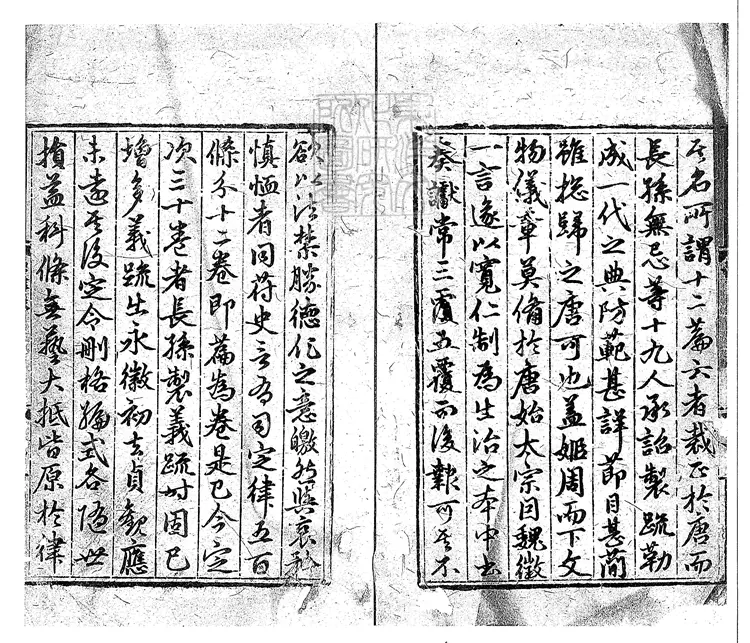 其名所謂十二篇云者裁正於唐而
長孫無忌等十九人承詔製疏勒
成一代之典防範甚詳節目甚簡
雖揔歸之唐可也蓋姬周而下文
物儀章莫備於唐始太宗因魏徵
一言遂以寬仁制為出治之本中書
奏讞常三覆五覆而後報可其不
欲以法禁勝德化之意皦然與哀矜
慎恤者同符史言有司定律五百
條分十二卷即篇為卷是已今定
次三十卷者長孫製義疏時固已
增多義疏出永徽初去貞觀應
未遠其後定令刪格編式各隨世
損益科條無藝大抵皆原於律